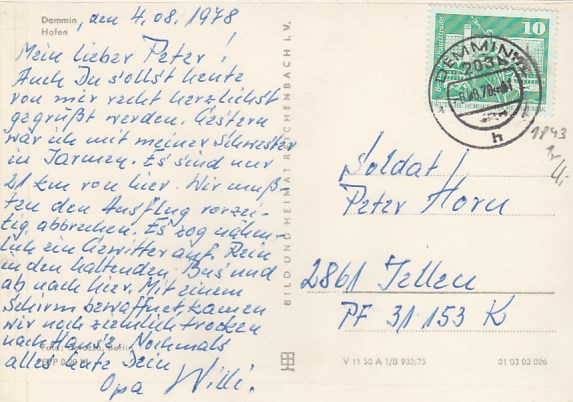 Demmin
Hafen
Demmin, den 4.08.1978
Mein lieber Peter!
Auch Du sollst heute
von mir recht herzlichst
gegrüßt werden. Gestern
war ich mit meiner Schwester
in Jarmen. Es sind nur
21 km von hier. Wir muß-
ten den Ausflug vorzei-
tig abbrechen. Es zog näm-
lich ein Gewitter auf. Rein
in den haltenden Bus und
ab nach hier. Mit einem
Schirm bewaffnet, kamen
wir noch ziemlich trocken
nach Hause. Nochmals
alles Gute Dein
Opa Willi.
BILD UND HEIMAT REICHENBACH i. V.
10
DEMMIN
h
1843
Soldat
Peter Horn
2861 Tellen
PF 31 153 K
V 11 50 A 1/B 932/75
01 03 03 026